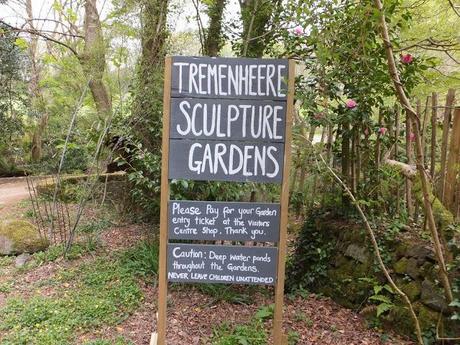 TREMENHEERE
SCULPTURE
GARDENS
Please Pay for your Garden
entry Ticket at the Visitors
Centre Shop. Thank you.
Caution: Deep water Ponds
throughout the Gardens.
NEVER LEAVE CHILDREN UNATTENDED